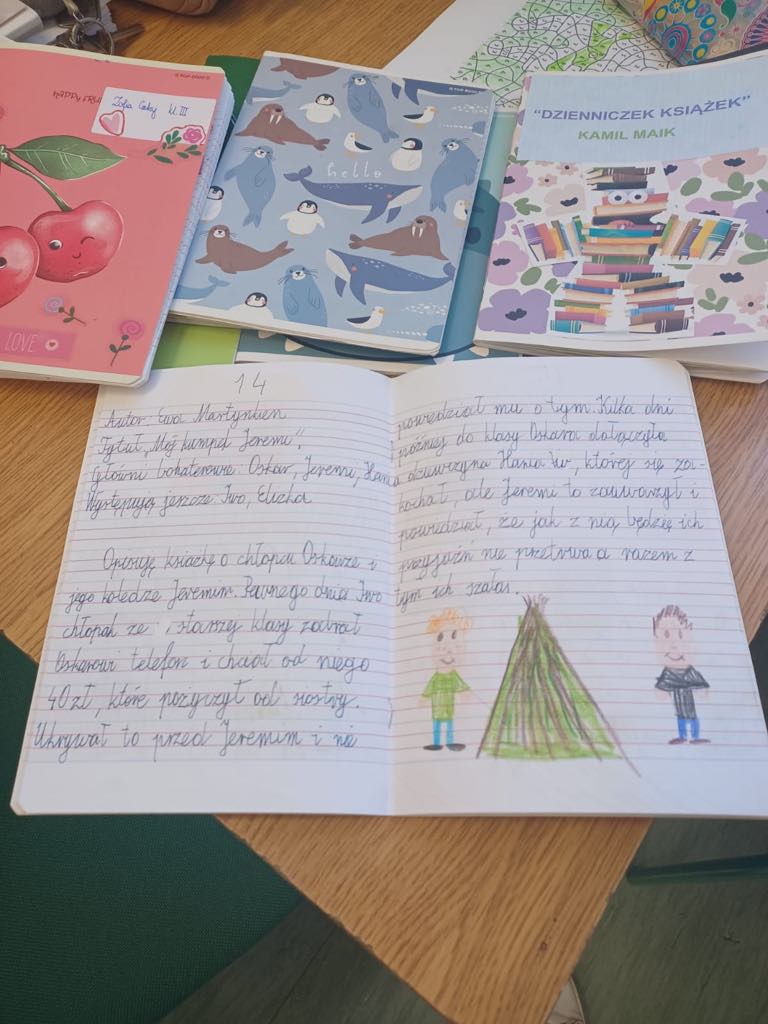 HAPPY FRU
Zofia Cekaj kl. III
LOVE
hello
"DZIENNICZEK KSIĄŻEK"
KAMIL MAIK
14
Autor: Ewa Martynkien
Tytuł „Mój kumpel Jeremi".
Główni bohaterowie: Oskar, Jeremi, Hania
Występują jeszcze: Iwo, Elizka
Opisuję książkę o chłopcu Oskarze i
jego koledze Jeremim. Pewnego dnia Iwo
chłopak ze starszej klasy zabrał
Oskarowi telefon i chciał od niego
40 zł, które pożyczył od siostry.
Ukrywał to przed Jeremim i nie
powiedział mu o tym. Kilka dni
później do klasy Oskara dołączyła
dziewczyna Hania w, której się za-
kochał, ale Jeremi to zauważył i
powiedział, że jak z nią będzie ich
przyjaźń nie przetrwa a razem z
tym ich szałas.